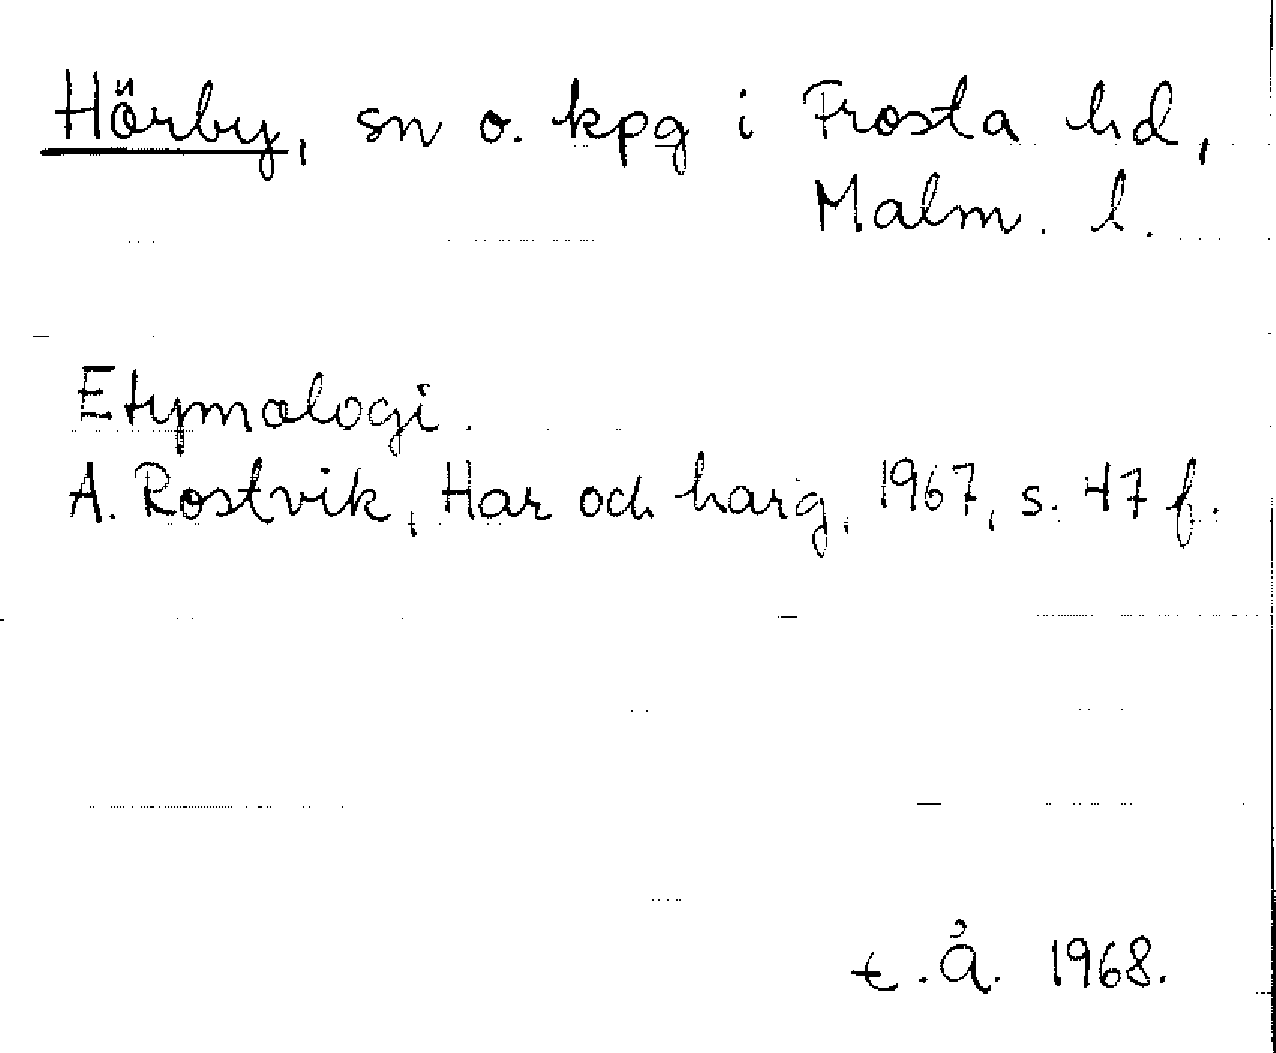 Hörby, sn o. kpg i Frosta hd,
Malm. l.
Etymologi.
A. Rostvik, Har och harg, 1967, s. 47 f.
t. Å. 1968.